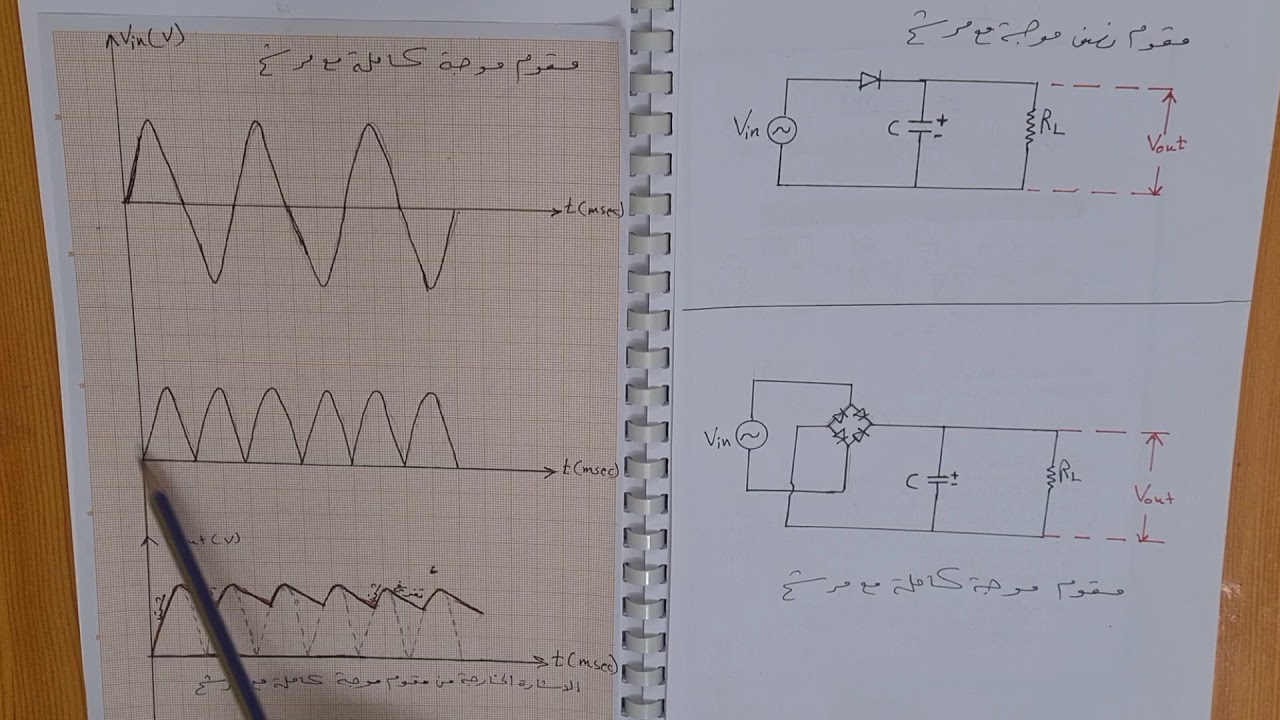 Vin(V)
مقوم موجة كاملة مع مرشح
t(msec)
t(msec)
t(msec)
الاشارة الخارجة من مقوم موجة كاملة مع مرشح
مقوم نصف موجة مع مرشح
Vin
C
+
-
RL
Vout
Vin
C
+
-
RL
Vout
مقوم موجة كاملة مع مرشح